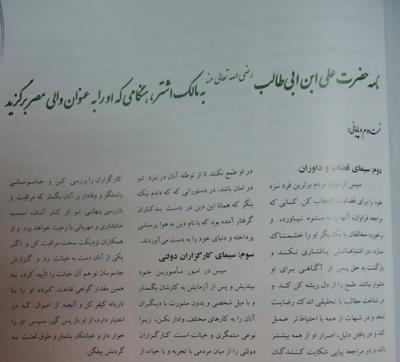 نامه حضرت علی ابن ابی طالب رضی الله تعالی عنه به مالک اشتر، هنگامی که او را به عنوان والی مصر برگزید
قسمت دوم و پایانی:
دوم: سیمای قضات و داوران
سپس از میان مردم برترین فرد نزد
خود را برای قضاوت انتخاب کن. کسانی که
مراجعه فراوان، آنها را به ستوه نیاورده، و
برخورد مخالفان با یکدیگر او را خشمناک
نکند. در اشتباهاتش پافشاری نکند و
بازگشت به حق پس از آگاهی برای او
دشوار نباشد. طمع را از دل ریشه کن کند و
در شناخت مطالب با تحقیقی اندک رضایت
ندهد و در شبهات از همه با احتیاط تر عمل
کند و در یافتن دلیل، اصرار او از همه بیشتر
و در مراجعه پیاپی شکایت کنندگان
در او طمع نکند تا از توطئه آنان در نزد تو
در امان باشد. در دستوراتی که که دادم نیک
بنگر که همانا این دین در دست بدکاران
گرفتار آمده بود که با نام دین به هوا پرستی
پرداخته و دنیای خود را به دست می‌آوردند.
سوم: سیمای کارگزاران دولتی
سپس در امور مأمورین خود
بیندیش و پس از آزمایش به کارشان بگمار
و با میل شخصی و بدون مشورت با دیگران
آنان را به کارهای مختلف وادار نکن، زیرا
نوعی ستمگری و خیانت است. کارگزاران
دولتی را از میان مردمی با تجربه و با حیا، از
کارگزاران را بررسی کن و جاسوسانی
راستگو و وفادار بر آنان بگمار که مراقبت و
بازرسی پنهانی تو از کار آنان، سبب
امانتداری و مهربانی با رعیت خواهد بود. و از
همکاران نزدیکت سخت مراقبت کن و اگر
یکی از آنان دست به خیانت زد و گزارش
جاسوسان تو هم آن خیانت را تأیید کرد، به
همین مقدار گواهی قناعت کرده او را با
تازیانه کیفر کن و آنچه از اموال که در
اختیار دارد، از او باز پس گیر. سپس او را
خوار دار و خیانتکار بشمار و طوق لعنت به
گردنش بیفگن.